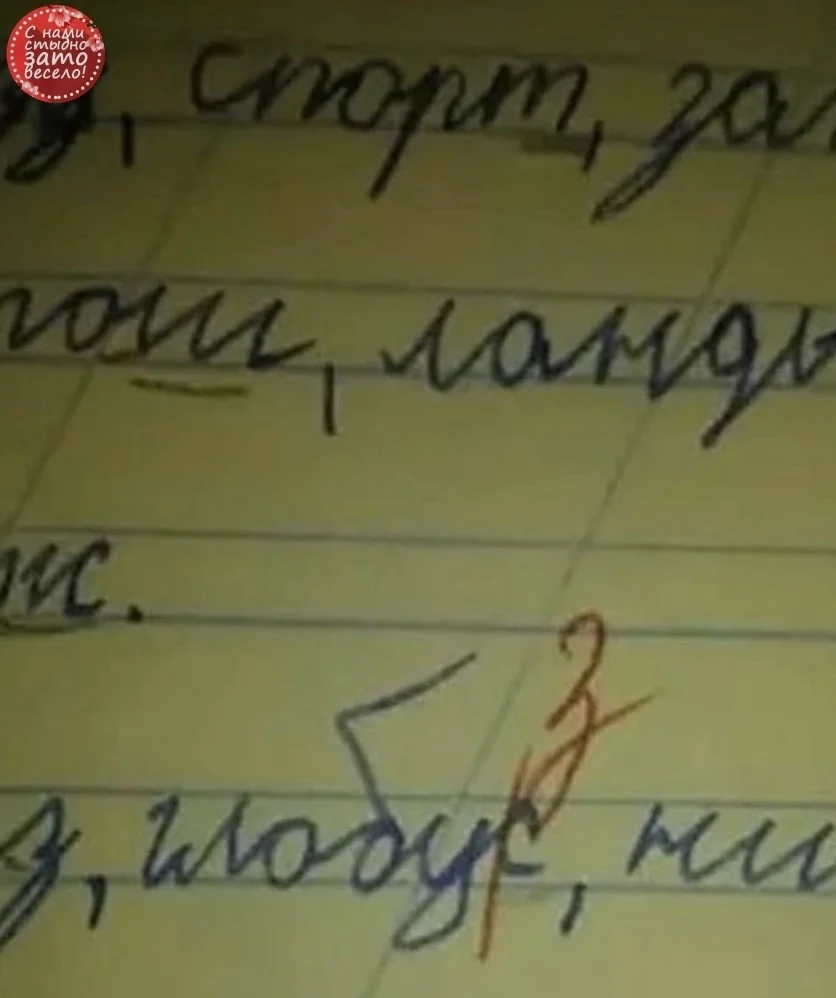 С нами
стыдно
зато
весело!
, спорт, за
ош, ланды
ж.
з
з, глобус, ни